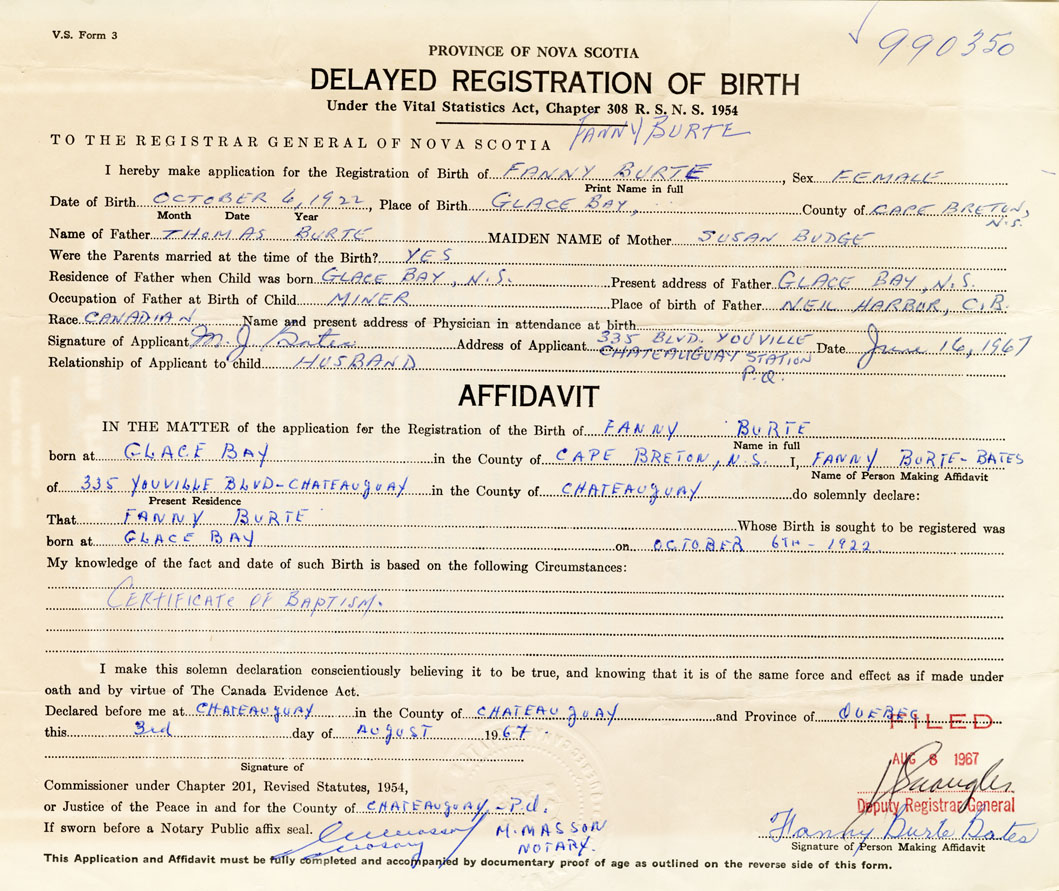 V.S. Form 3
990350
PROVINCE OF NOVA SCOTIA
DELAYED REGISTRATION OF BIRTH
Under the Vital Statistics Act, Chapter 308 R. S. N. S. 1954
FANNY BURTE
TO THE REGISTRAR GENERAL OF NOVA SCOTIA
I hereby make application for the Registration of Birth of FANNY BURTE, Sex FEMALE
Print Name in full
Date of Birth OCTOBER 6, 1922, Place of Birth GLACE BAY, County of CAPE BRETON, N.S.
Month Date Year
Name of Father THOMAS BURTE MAIDEN NAME of Mother SUSAN BUDGE
Were the Parents married at the time of the Birth? YES
Residence of Father when Child was born GLACE BAY, N.S. Present address of Father GLACE BAY, N.S.
Occupation of Father at Birth of Child MINER Place of birth of Father NEIL HARBOR, C.B.
Race CANADIAN Name and present address of Physician in attendance at birth
Signature of Applicant M. J. Bates Address of Applicant 335 BLVD. YOUVILLE CHATEAUGUAY STATION P.Q. Date June 16, 1967
Relationship of Applicant to child HUSBAND
AFFIDAVIT
IN THE MATTER of the application for the Registration of the Birth of FANNY BURTE
Name in full
born at GLACE BAY in the County of CAPE BRETON, N.S. I, FANNY BURTE-BATES
Name of Person Making Affidavit
of 335 YOUVILLE BLVD-CHATEAUGUAY in the County of CHATEAUGUAY do solemnly declare:
Present Residence
That FANNY BURTE Whose Birth is sought to be registered was
born at GLACE BAY on OCTOBER 6TH - 1922
My knowledge of the fact and date of such Birth is based on the following Circumstances:
CERTIFICATE OF BAPTISM.
I make this solemn declaration conscientiously believing it to be true, and knowing that it is of the same force and effect as if made under
oath and by virtue of The Canada Evidence Act.
Declared before me at CHATEAUGUAY in the County of CHATEAUGUAY and Province of QUEBEC
FILED
this 3rd day of AUGUST 1967.
AUG 8 1967
Signature of
Commissioner under Chapter 201, Revised Statutes, 1954,
or Justice of the Peace in and for the County of CHATEAUGUAY - P.Q.
Deputy Registrar General
If sworn before a Notary Public affix seal. M. MASSON
NOTARY.
Fanny Burte Bates
Signature of Person Making Affidavit
This Application and Affidavit must be fully completed and accompanied by documentary proof of age as outlined on the reverse side of this form.